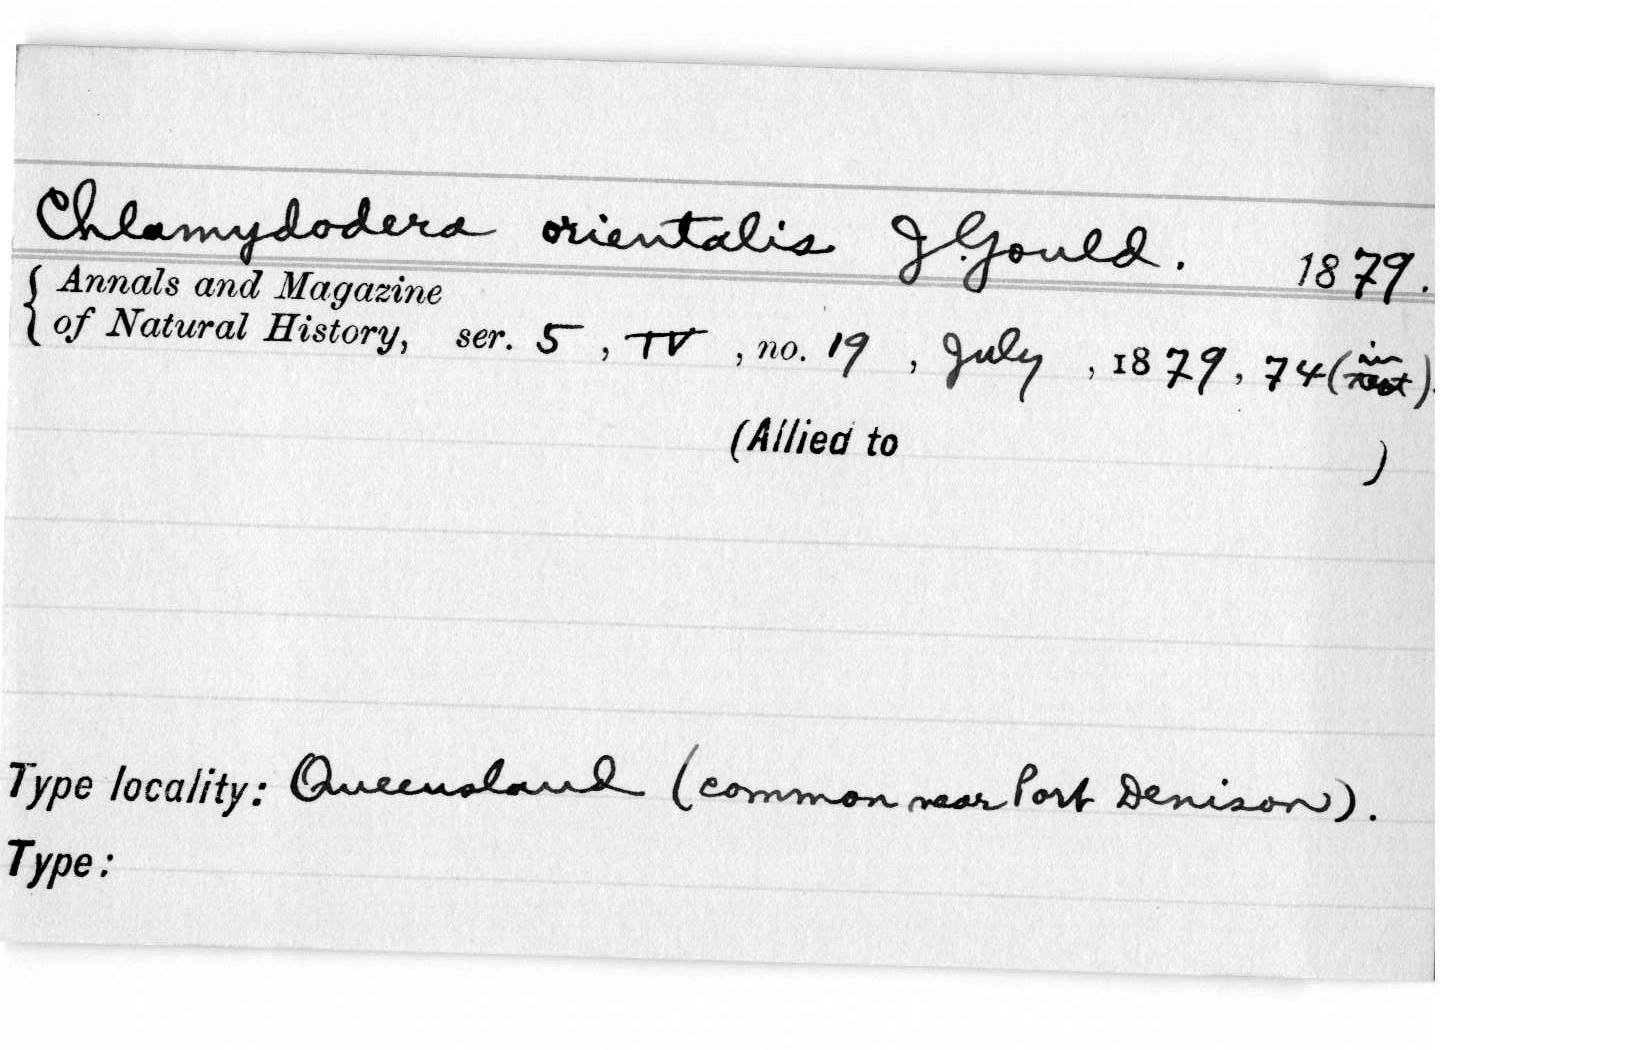 Chlamydodera orientalis J. Gould. 1879.
{ Annals and Magazine
of Natural History, ser. 5, IV, no. 19, July, 1879, 74 (in text).
(Allied to )
Type locality: Queensland (common near Port Denison).
Type: